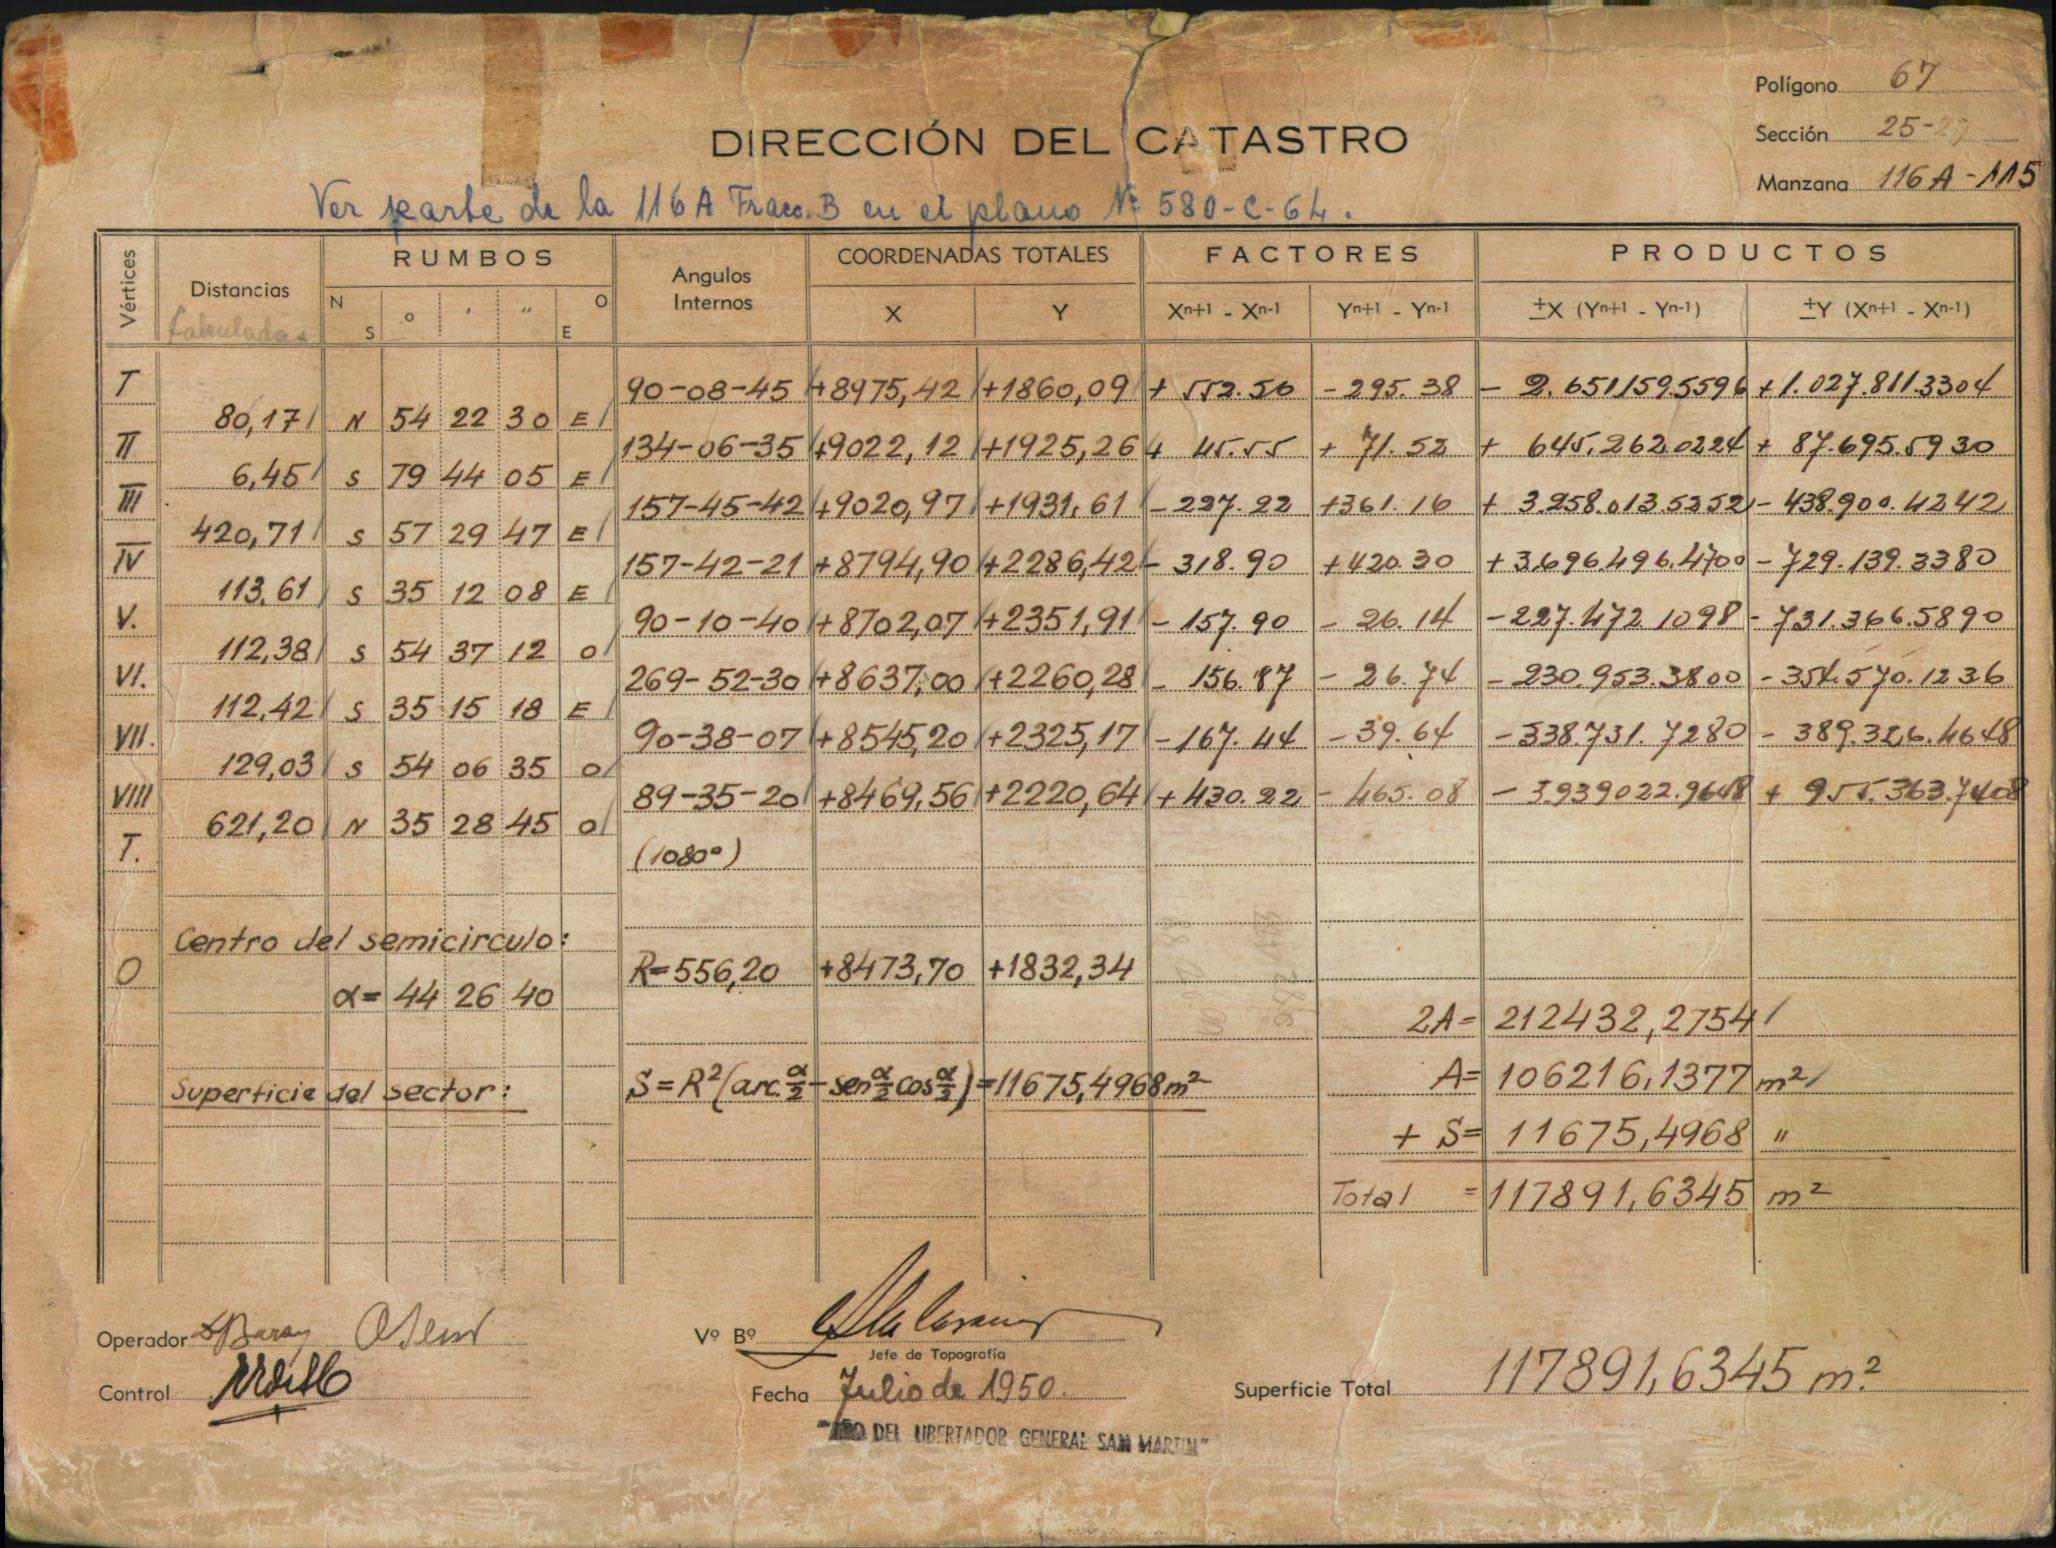 Polígono 67
DIRECCIÓN DEL CATASTRO
Sección 25-27
Manzana 116A-115
Ver parte de la 116A Fracc. B en el plano Nº 580-C-64.
Vértices Distancias RUMBOS Angulos Internos COORDENADAS TOTALES FACTORES PRODUCTOS
Calculadas N S o ' '' O E X Y Xn+1 - Xn-1 Yn+1 - Yn-1 ±X (Yn+1 - Yn-1) ±Y (Xn+1 - Xn-1)
I 90-08-45 +8975,42 +1860,09 + 552.56 - 295.38 - 2.651159.5596 +1.027.811.3304
80,17 N 54 22 30 E
II 134-06-35 +9022,12 +1925,26 + 45.55 + 71.52 + 645.262.0224 + 87.695.5930
6,45 S 79 44 05 E
III 157-45-42 +9020,97 +1931,61 - 227.22 +361.16 + 3.258.013.5252 - 438.900.4242
420,71 S 57 29 47 E
IV 157-42-21 +8794,90 +2286,42 - 318.90 +420.30 + 3.696.496.4700 - 729.139.3380
113,61 S 35 12 08 E
V. 90-10-40 +8702,07 +2351,91 - 157.90 - 26.14 - 227.472.1098 - 731.366.5890
112,38 S 54 37 12 O
VI. 269-52-30 +8637,00 +2260,28 - 156.87 - 26.74 - 230.953.3800 - 354.570.1236
112,42 S 35 15 18 E
VII. 90-38-07 +8545,20 +2325,17 - 167.44 - 39.64 - 338.731.7280 - 389.326.4648
129,03 S 54 06 35 O
VIII 89-35-20 +8469,56 +2220,64 + 430.22 - 465.08 - 3.939022.9648 + 955.363.7408
621,20 N 35 28 45 O
I. (1080º)
Centro del semicirculo:
O R=556,20 +8473,70 +1832,34
α= 44 26 40
2A= 212432,2754
Superficie del sector: S=R²(arc.α/2-sen α/2 cos α/2)=11675,4968m² A= 106216,1377 m²
+ S= 11675,4968 "
Total =117891,6345 m²
Operador
Vº Bº
Jefe de Topografía
Control
Fecha Julio de 1950.
Superficie Total 117891,6345 m².
"AÑO DEL LIBERTADOR GENERAL SAN MARTIN"